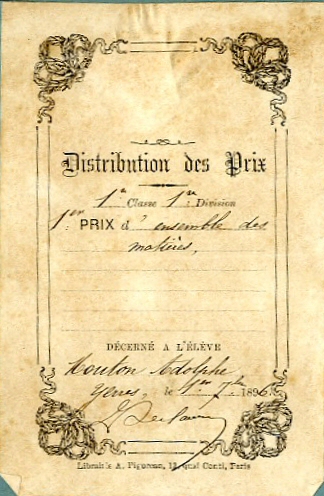 Distribution des Prix
1re Classe 1re Division
1er PRIX d'ensemble des
matières,
DÉCERNÉ A L'ÉLÈVE
Mouton Adolphe
Yerres, le 1er 7bre 1896
Librairie A. Pigoreau, 13, quai Conti, Paris